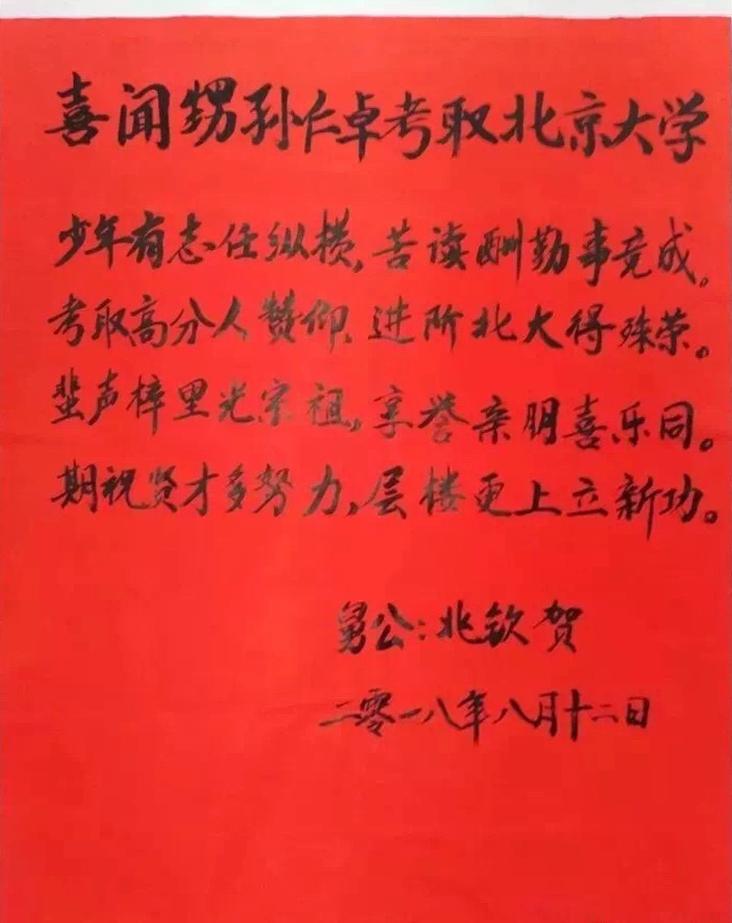 喜闻甥孙仁卓考取北京大学
少年有志任纵横,苦读酬勤事竟成。
考取高分人赞仰,进阶北大得殊荣。
蜚声梓里光宗祖,享誉亲朋喜乐同。
期祝贤才多努力,层楼更上立新功。
舅公:兆钦贺
二零一八年八月十二日